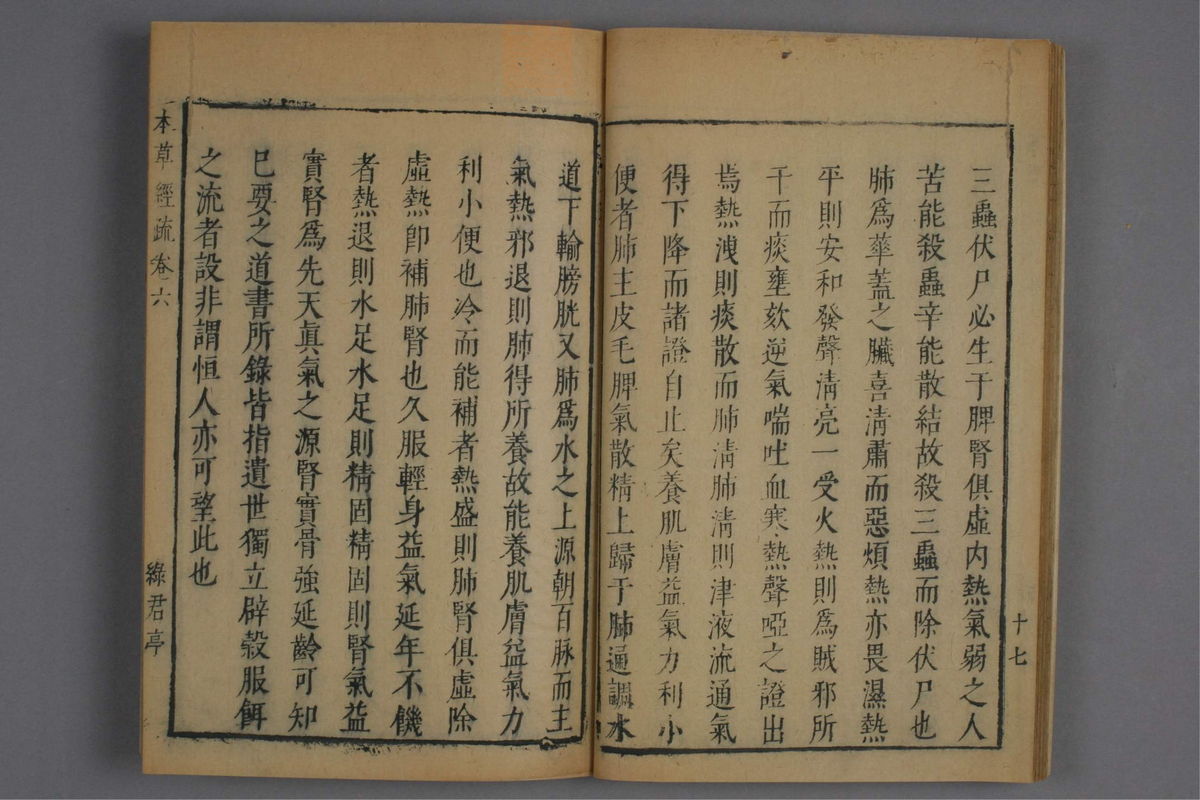 十七
三蟲伏尸必生于脾腎俱虛內熱氣弱之人
苦能殺蟲辛能散結故殺三蟲而除伏尸也
肺爲華蓋之臟喜清肅而惡煩熱亦畏濕熱
平則安和發聲清亮一受火熱則爲賊邪所
干而痰壅欬逆氣喘吐血寒熱聲啞之證出
焉熱洩則痰散而肺清肺清則津液流通氣
得下降而諸證自止矣養肌膚益氣力利小
便者肺主皮毛脾氣散精上歸于肺通調水
道下輸膀胱又肺爲水之上源朝百脉而主
氣熱邪退則肺得所養故能養肌膚益氣力
利小便也冷而能補者熱盛則肺腎俱虛除
虛熱卽補肺腎也久服輕身益氣延年不饑
者熱退則水足水足則精固精固則腎氣益
實腎爲先天眞氣之源腎實骨強延齡可知
已要之道書所錄皆指遺世獨立辟穀服餌
之流者設非謂恒人亦可望此也
本草經疏卷六
綠君亭